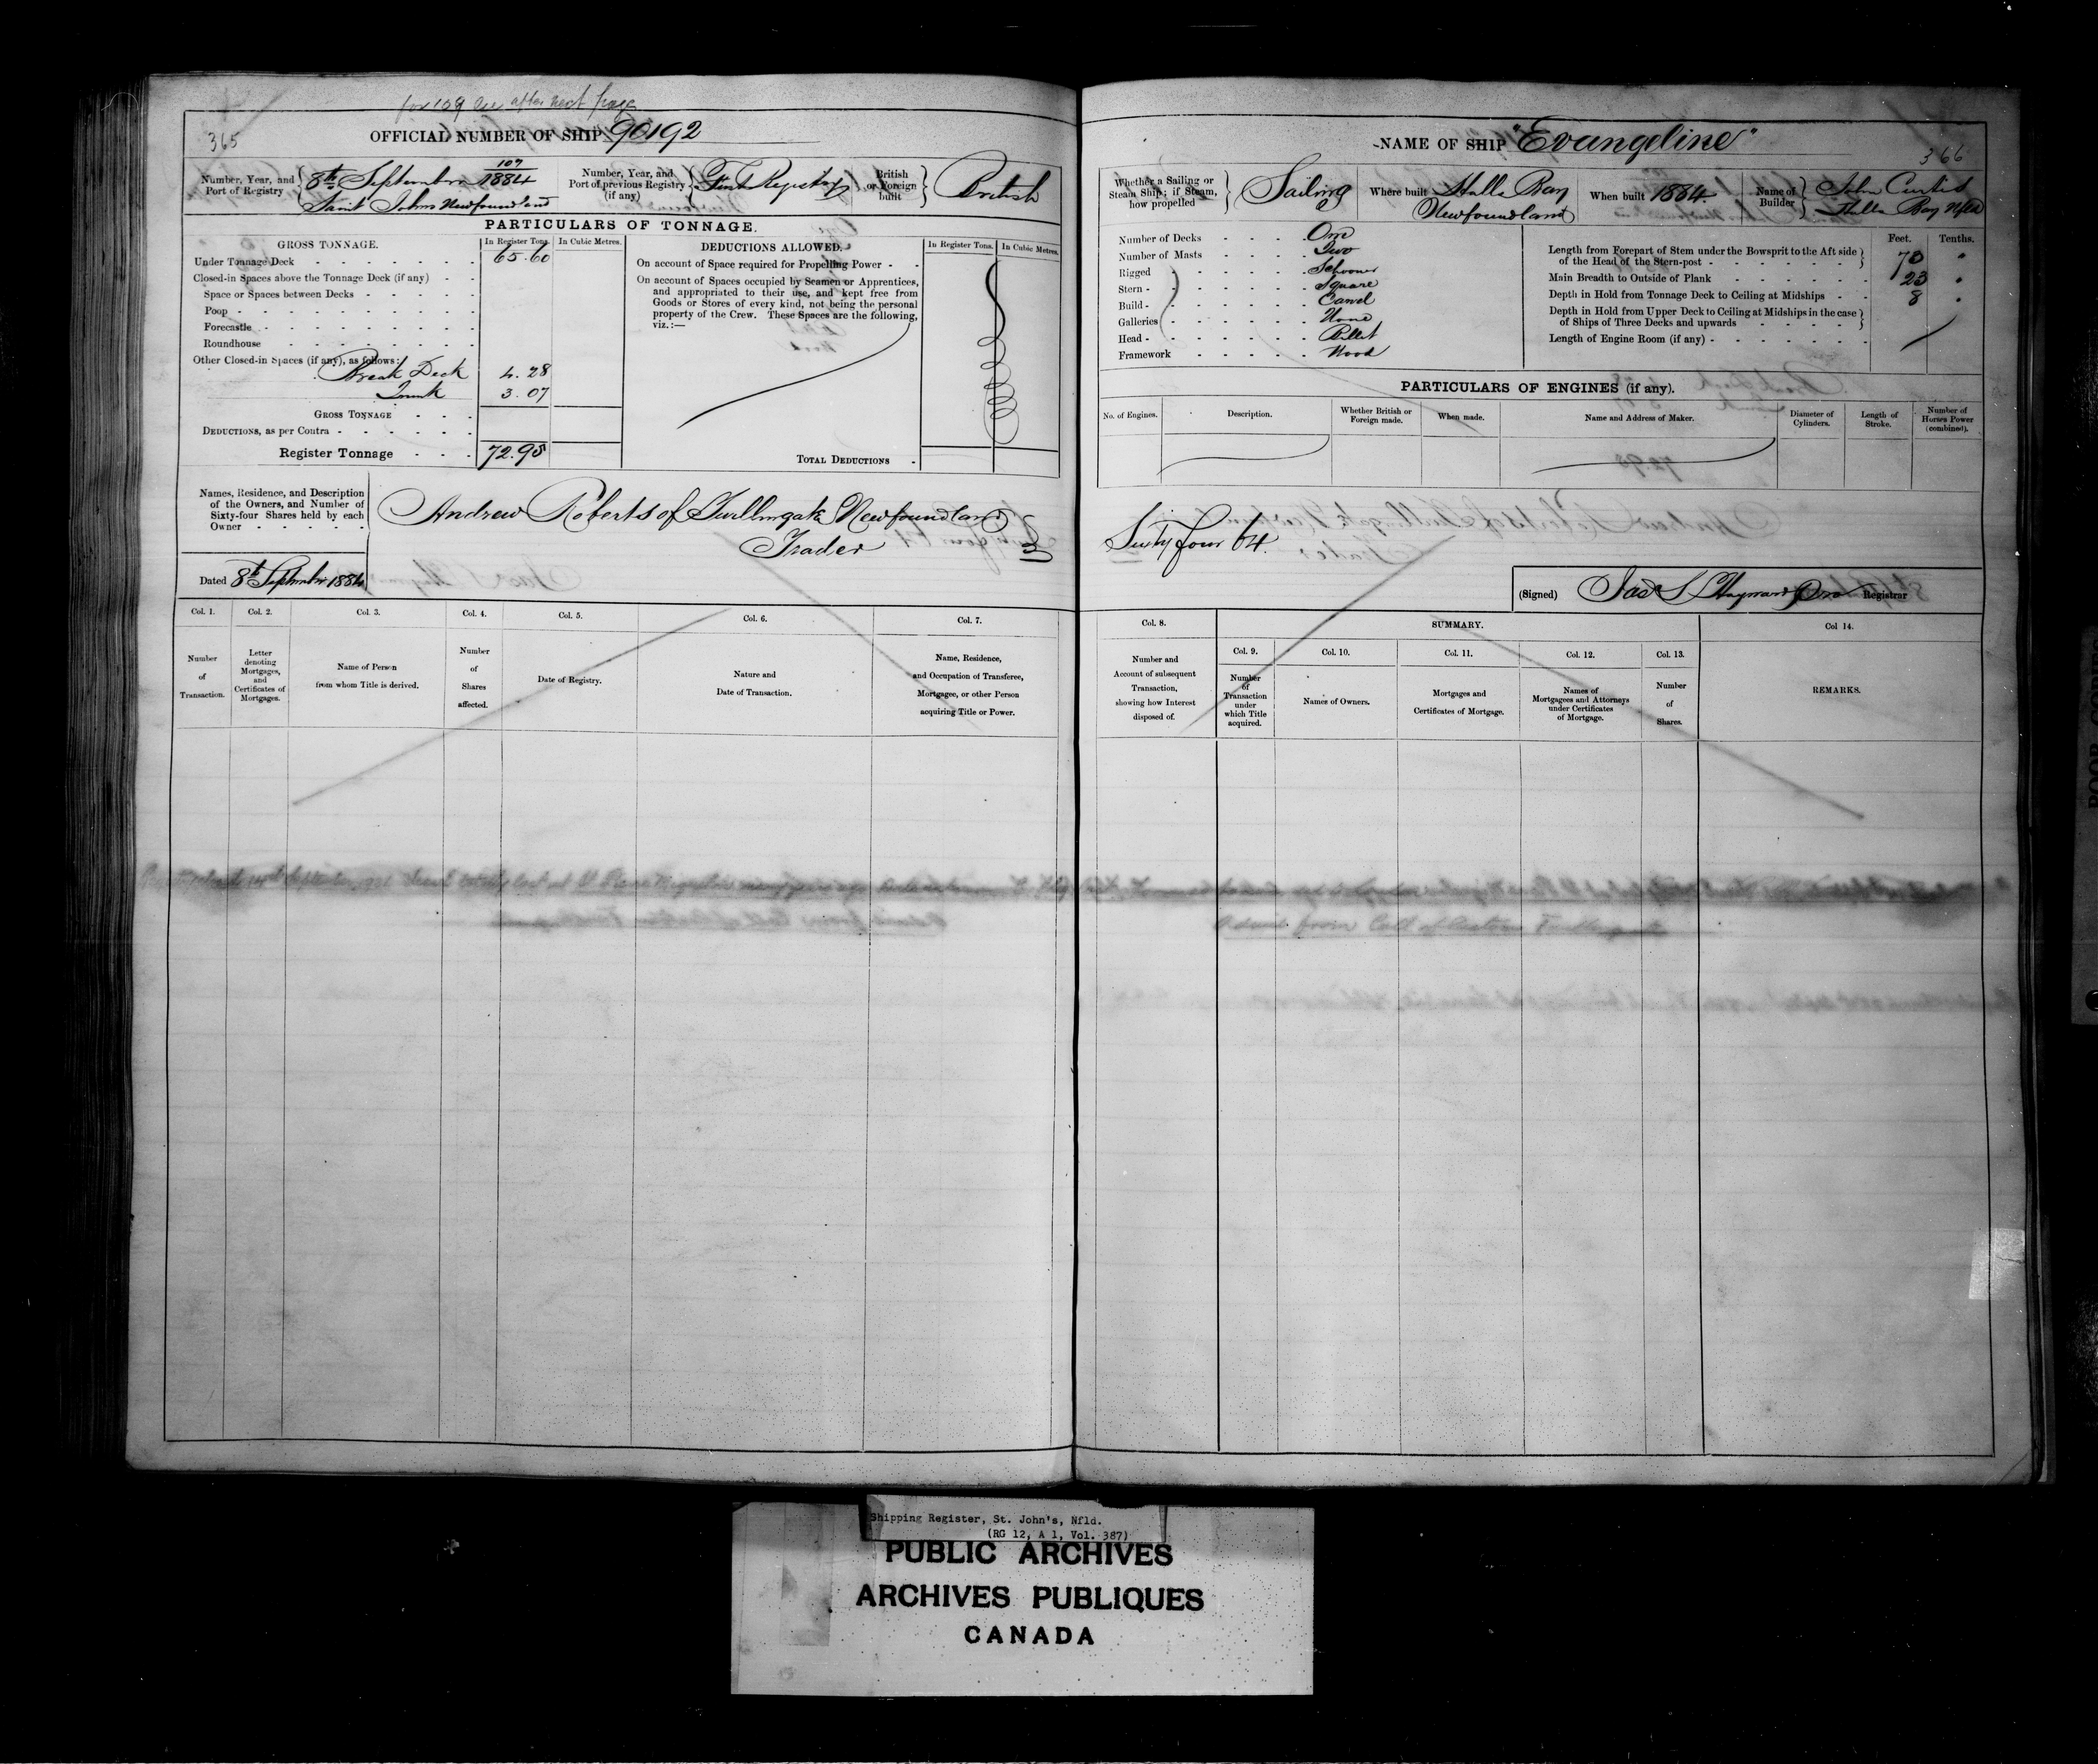 for 109 see after next page
365
OFFICIAL NUMBER OF SHIP 90192
Number, Year, and Port of Registry
107
8th September 1884
Saint Johns Newfoundland
Number, Year, and Port of previous Registry (if any)
First Registry
British or Foreign built
British
PARTICULARS OF TONNAGE.
GROSS TONNAGE.
In Register Tons.
In Cubic Metres.
Under Tonnage Deck 65.60
Closed-in Spaces above the Tonnage Deck (if any)
Space or Spaces between Decks
Poop
Forecastle
Roundhouse
Other Closed-in Spaces (if any), as follows:
Break Deck 4.28
Trunk 3.07
GROSS TONNAGE
DEDUCTIONS, as per Contra
Register Tonnage 72.95
DEDUCTIONS ALLOWED.
In Register Tons.
In Cubic Metres.
On account of Space required for Propelling Power
On account of Spaces occupied by Seamen or Apprentices,
and appropriated to their use, and kept free from
Goods or Stores of every kind, not being the personal
property of the Crew. These Spaces are the following,
viz.:—
TOTAL DEDUCTIONS
Names, Residence, and Description
of the Owners, and Number of
Sixty-four Shares held by each
Owner
Andrew Roberts of Twillingate Newfoundland
Trader
Dated 8th September 1884
Col. 1.
Number
of
Transaction.
Col. 2.
Letter
denoting
Mortgages,
and
Certificates of
Mortgages.
Col. 3.
Name of Person
from whom Title is derived.
Col. 4.
Number
of
Shares
affected.
Col. 5.
Date of Registry.
Col. 6.
Nature and
Date of Transaction.
Col. 7.
Name, Residence,
and Occupation of Transferee,
Mortgagee, or other Person
acquiring Title or Power.
NAME OF SHIP "Evangeline"
366
Whether a Sailing or
Steam Ship; if Steam,
how propelled
Sailing
Where built
Halls Bay
Newfoundland
When built 1884.
Name of Builder
John Curtis
Halls Bay Nfld
Number of Decks One
Number of Masts Two
Rigged Schooner
Stern Square
Build Carvel
Galleries None
Head Billet
Framework Wood
Feet.
Tenths.
Length from Forepart of Stem under the Bowsprit to the Aft side
of the Head of the Stern-post 73 "
Main Breadth to Outside of Plank 23 "
Depth in Hold from Tonnage Deck to Ceiling at Midships 8 "
Depth in Hold from Upper Deck to Ceiling at Midships in the case
of Ships of Three Decks and upwards
Length of Engine Room (if any)
PARTICULARS OF ENGINES (if any).
No. of Engines.
Description.
Whether British or
Foreign made.
When made.
Name and Address of Maker.
Diameter of
Cylinders.
Length of
Stroke.
Number of
Horses Power
(combined).
Sixty four 64.
(Signed) Jas S Hayward Registrar
Col. 8.
Number and
Account of subsequent
Transaction,
showing how Interest
disposed of.
SUMMARY.
Col. 9.
Number
of
Transaction
under
which Title
acquired.
Col. 10.
Names of Owners.
Col. 11.
Mortgages and
Certificates of Mortgage.
Col. 12.
Names of
Mortgagees and Attorneys
under Certificates
of Mortgage.
Col. 13.
Number
of
Shares.
Col 14.
REMARKS.
Shipping Register, St. John's, Nfld.
(RG 12, A 1, Vol. 387)
PUBLIC ARCHIVES
ARCHIVES PUBLIQUES
CANADA